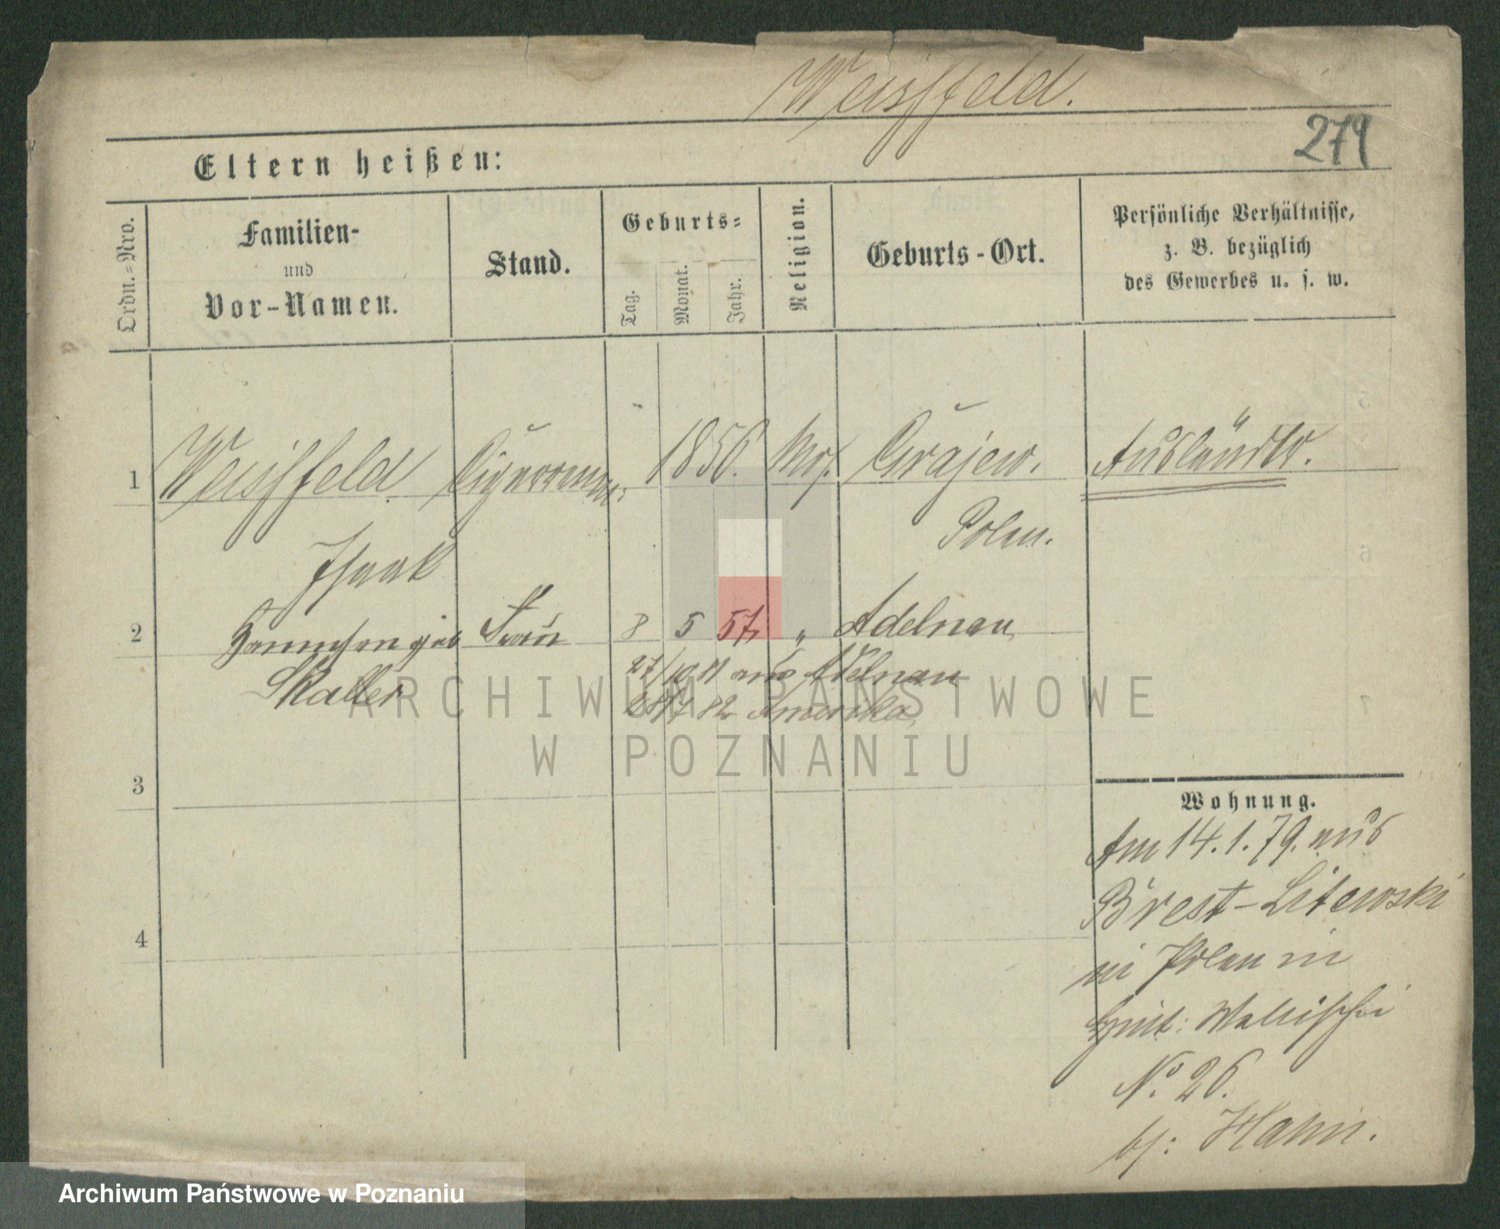 Weissfeld.
279
Eltern heißen:
Ordn.-Nro.
Familien-
und
Vor-Namen.
Stand.
Geburts-
Tag.
Monat.
Jahr.
Religion.
Geburts-Ort.
Persönliche Verhältnisse,
z. B. bezüglich
des Gewerbes u. s. w.
1 Weissfeld 1856. Mos. Grajew. Ausländer.
Isaak Polen.
2 geb Frau 8 5 57 " Adelnau
Skaller 27/10 81 aus Adelnau
82 Amerika
ARCHIWUM PAŃSTWOWE
W POZNANIU
3
4
Wohnung.
Am 14.1.79. aus
Brest-Litewski
in Polen in
Hint: Wallischei
No. 26.
b/: Hann.
Archiwum Państwowe w Poznaniu